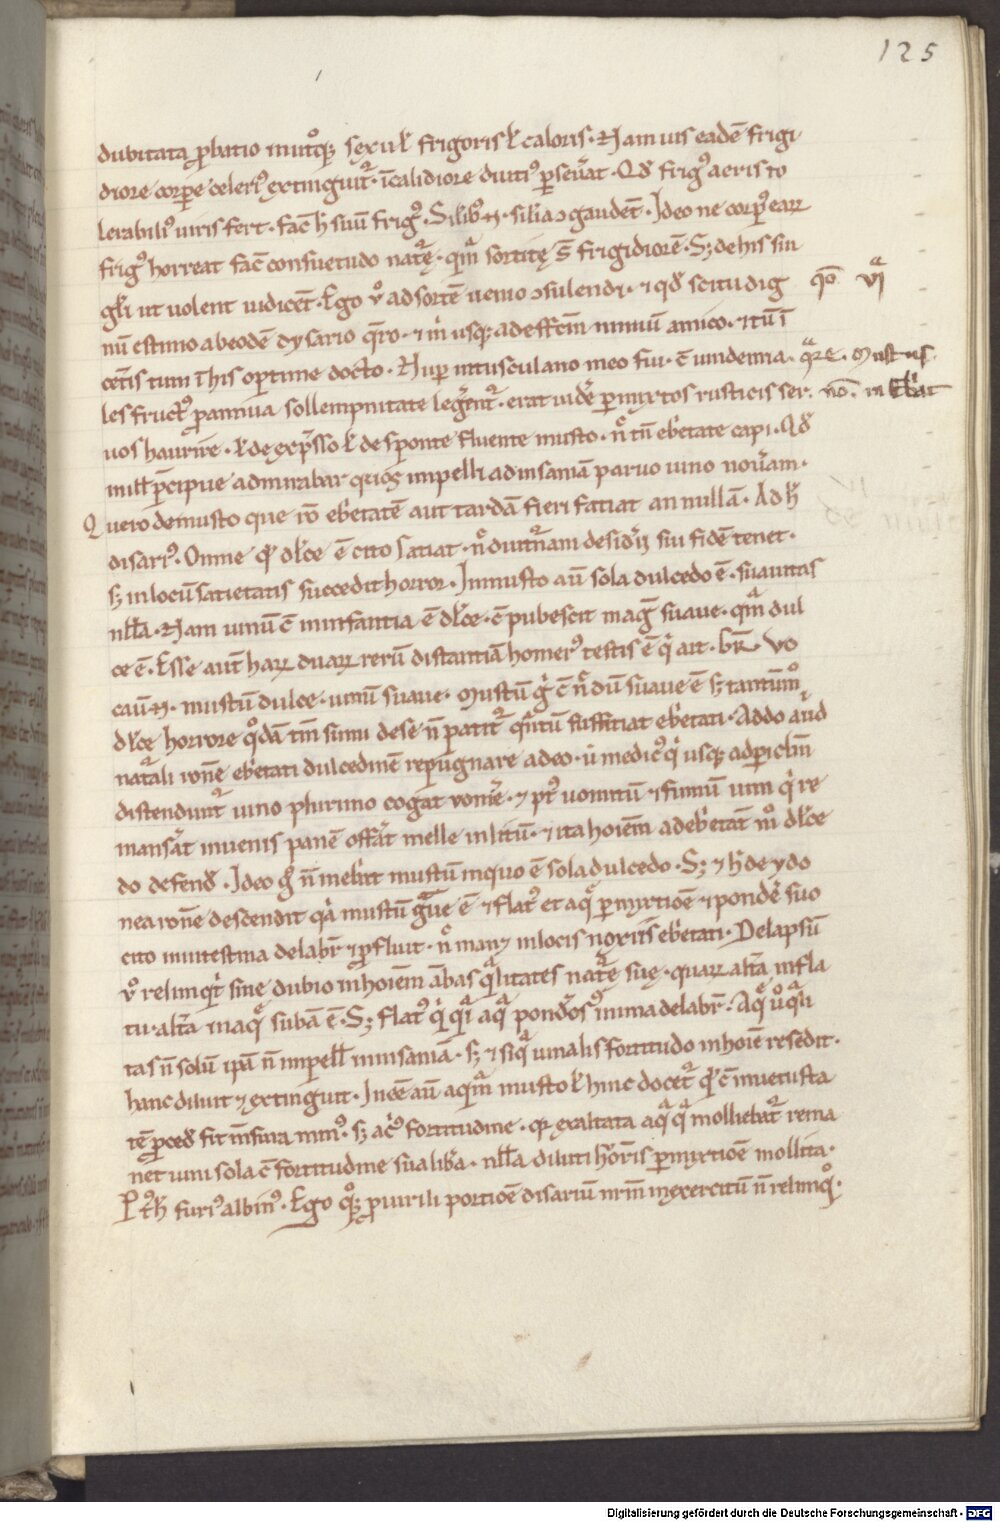 125
dubitata ꝓbatio in utͦqꝫ sexu ł frigoris ł caloris · Nam uis eadē frigi
diore corpe celeriꝰ extinguit᷑ · ī calidiore diutiꝰ ꝑseuat · Qđ frigꝰ aeris to
lerabiliꝰ uiris fert · fac̄ h̄ suū frigꝰ · Silibꝰ · n · silia ɔgaudēt · Ideo ne corpꝰ earꝝ
frigꝰ horreat fac̄ consuetudo nat᷑ę · qm̄ sortitę s̄ frigidiorē · Sꝫ de his sin
głi ut uolent iudicēt · Ego ů ad sortē uenio ɔsulendi · ⁊ qđ scitu dig
qō VI
nū estimo ab eodē dysario q̄ro · ⁊ m̊ usqꝫ ad effc̄m nimiū amico · ⁊ tū ī
cet̄is tum ī his optime docto · Nuꝑ in tusculano meo fui · c̄ uindemia
q̄re · mustus
les fructꝰ ꝓ annua sollempnitate leg̃ent᷑ · erat uidẽ ꝑmyxtos rusticis ser
nō · inebriat
uos haurire · ł de exp̄sso ł de sponte fluente musto · n̊ tn̄ eb̊etate capi · Qđ
in ill p̄cipue admirabar quos impelli ad insaniā paruo uino noũam ·
Quero de musto que rō eb̊etatē aut tardā fieri fatiat an nullā · Ad h̄
disariꝰ · Omne qđ dłce ē cito satiat · n̊ diut᷑nam desidii sui fidē tenet ·
sꝫ in locū satietatis succedit horror · In musto aū sola dulcedo ē · suauitas
nłła · Nam uinū c̄ in infantia ē dłce · c̄ pubescit mag̃ suaue · qm̄ dul
ce ē · Esse aut̄ harꝝ duarꝝ rerū distantiā homerꝰ testis ē qͥ ait ·
caū · n · mustū dulce · uinū suaue · mustū g̊ c̄ n̊ dū suaue ē sꝫ tantūmͦ
dłce horrore qͦdā tm̄ sumi de se n̄ patit᷑ qͣntū suffitiat eb̊etati · Addo aliud
nat᷑ali rōne eb̊etati dulcedinē repugnare adeo · ů medici usqꝫ ad ꝑiclm̄
distendunt᷑ uino plurimo cogāt uomẽ · ⁊ pꝰ uomitū ⁊ fumū uini qͥ re
mansit in uenis panē offerāt melle inlitū · ⁊ ita hoiēm ad eb̊etāt mͦ dłce
do defendit · Ideo g̊ n̄ ineb̊at mustū in quo ē sola dulcedo · Sꝫ ⁊ h̄ de ydo
nea rōne descendit qͣ mustū gͣue ē ⁊ flatꝰ et aqͤ ꝑmyxtiōē ⁊ pondẽ suo
cito in intestina delabr̄ ⁊ ꝓfluit · n̊ man⁊ in locis noxiis eb̊etati · Delapsū
ů relinqͥt sine dubio in hoiēm ābas qͣlitates nat᷑ę suę · quarꝝ alt̄a in fla
tu · alt̄a in aqͤ subā ē · Sꝫ flatꝰ qͥ qͣi aqͣ pondosꝰ in ima delabr̄ · Aqͤ ů qͣli
tas n̄ solū ipā n̄ impell in insaniā · sꝫ ⁊ siqͣ uinalis fortitudo in hoīē resedit ·
hanc diluit ⁊ extinguit · In eē aū aqͣm musto ł hinc docet᷑ qđ c̄ in uetusta
tē ꝓced fit m̄sura minꝰ · sꝫ acͥꝰ fortitudine · qꝛ exaltata aqͣ qͣ molliebat᷑ rema
net uini sola c̄ fortitudine sua libã · nłła diluti hͦris ꝑmyxtiōē mollita ·
Pꝰ h̄ furiꝰ albinꝰ · Ego qͦqꝫ ꝓ uirili portiōē disariū nr̄m inexercitū n̄ relinqͦ ·
Digitalisierung gefördert durch die Deutsche Forschungsgemeinschaft - DFG